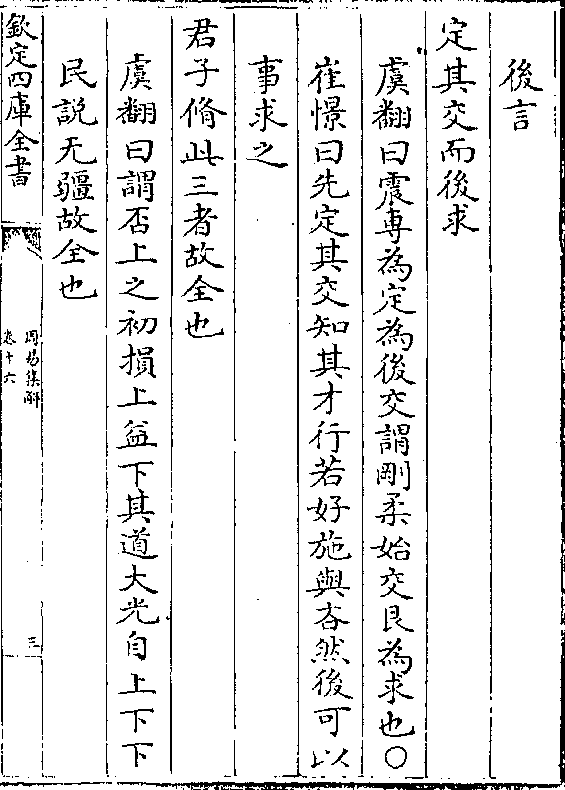 後言
定其交而後求
虞翻曰震專為定為後交謂剛柔始交艮為求也〇
崔憬曰先定其交知其才行若好施與吝然後可以
事求之
君子脩此三者故全也
虞翻曰謂否上之初損上益下其道大光自上下下
民説无疆故全也
欽定四庫全書
周易集解
卷十六
三